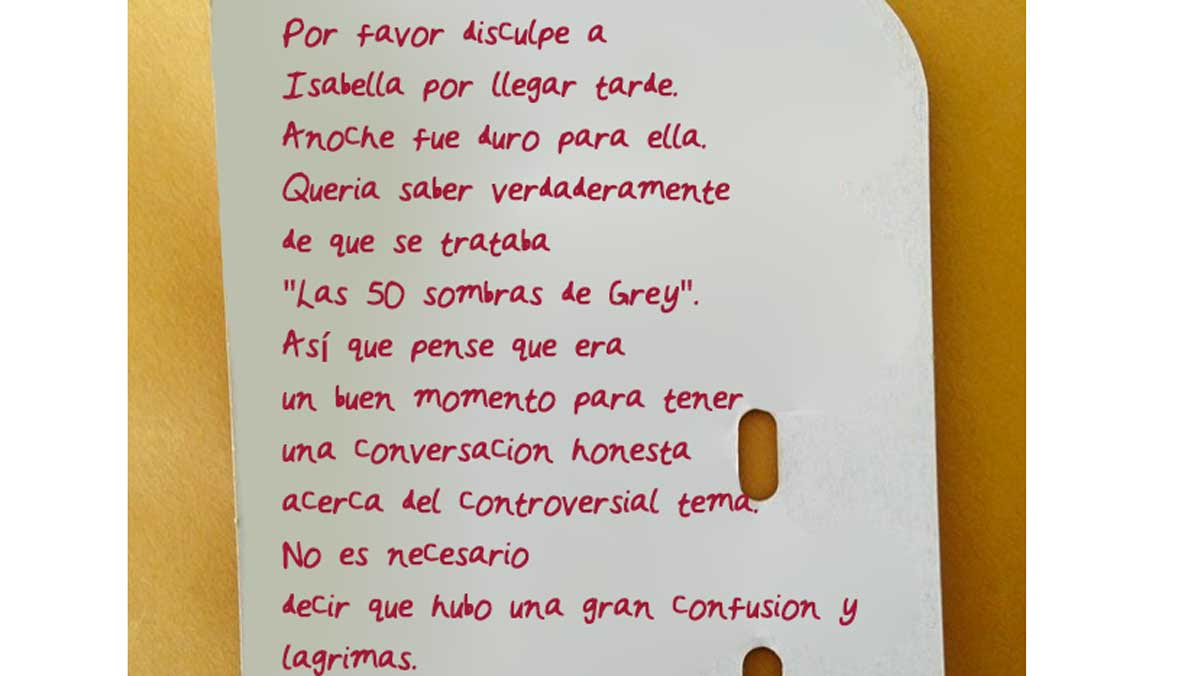 Por favor disculpe a
Isabella por llegar tarde.
Anoche fue duro para ella.
Queria saber verdaderamente
de que se trataba
"Las 50 sombras de Grey".
Así que pense que era
un buen momento para tener
una conversacion honesta
acerca del controversial tema.
No es necesario
decir que hubo una gran confusion y
lagrimas.